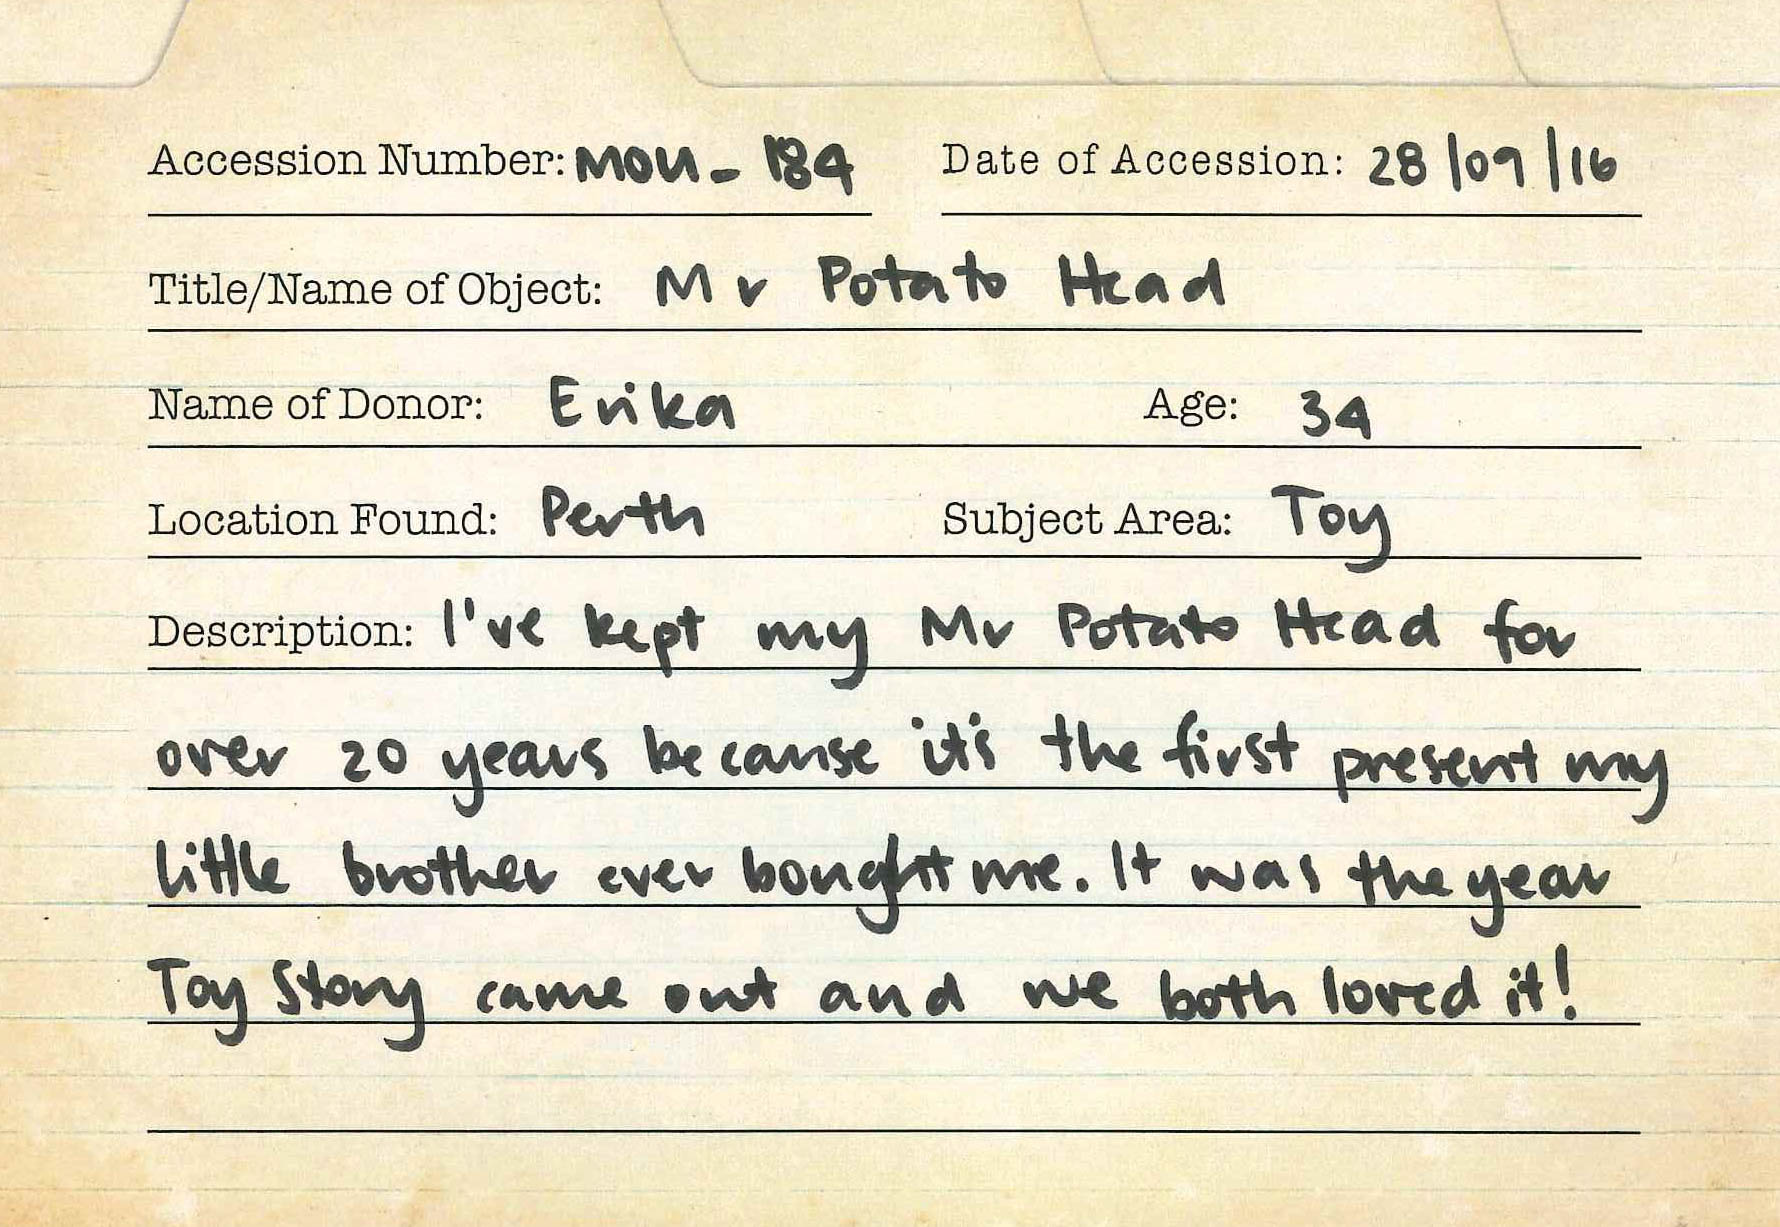 Accession Number: MOU-184 Date of Accession: 28/09/16
Title/Name of Object: Mr Potato Head
Name of Donor: Erika Age: 34
Location Found: Perth Subject Area: Toy
Description: I've kept my Mr Potato Head for
over 20 years because it's the first present my
little brother ever bought me. It was the year
Toy Story came out and we both loved it!